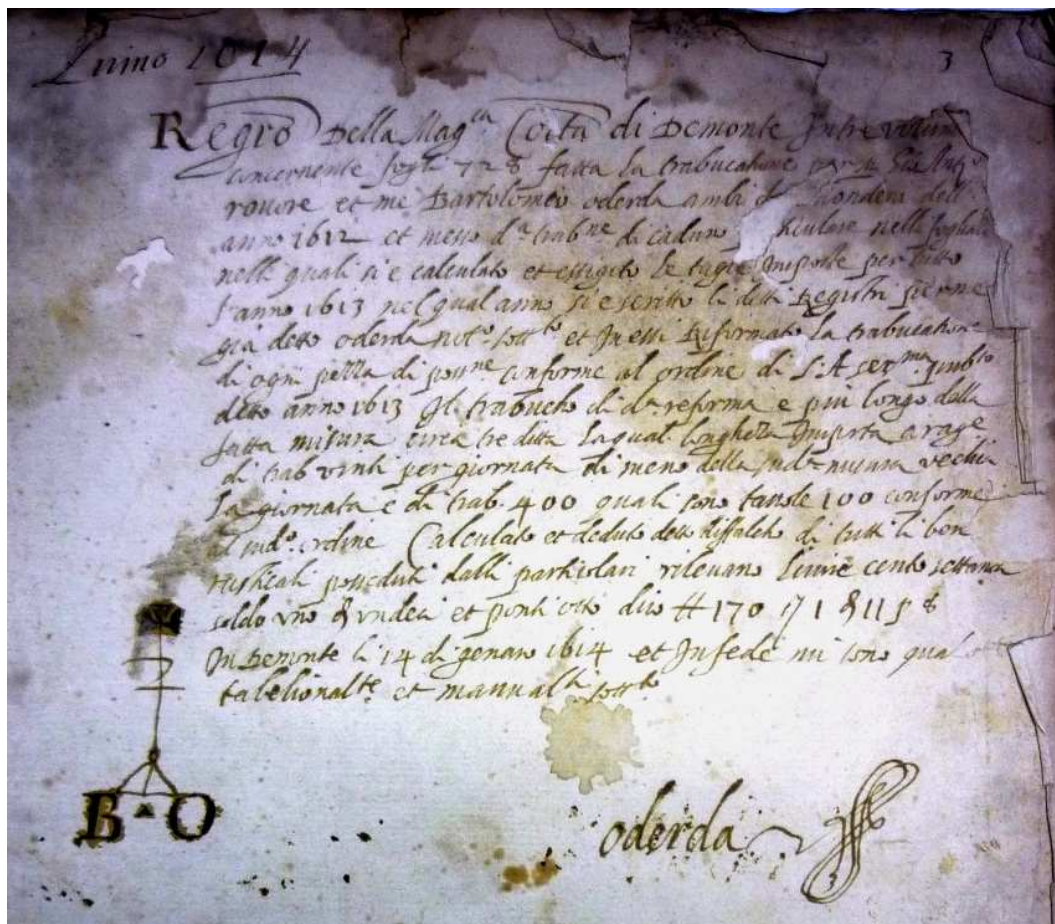 Anno 1614
3
Regro Della Mag.ca Coita di Demonte In tre volumi
concernente fogli 728 fatta la trabucatione per
rovore et me Bartolomeo oderda ambi di dell
anno 1612 et messo d.a trab.ne di caduno nelli
nelli quali si e calculato et essigito le taglie Imposte per tutto
l'anno 1613 nel qual anno si e scritto li detti Registri
gia detto oderda not.o sott.to et In essi Riformato la trabucatione
di ogni pezza di poss.ne conforme al ordine di S.A ser.ma
detto anno 1613 Il trabucho di d.a reforma e piu longo della
fatta misura circa tre ditta la qual longhezza Importa a rage
di trab vinti per giornata di meno della sud.a misura vechia
la giornata e di trab. 400 quali sono tavole 100 conforme
al sud.o ordine Calculato et deduto detto diffalcho di tutti li beni
rusticali posseduti dalli particolari rilevano livire cento settanta
soldo uno & undeci et ponti otto dico # 170 ſ 1 & 11 p 8
In Demonte li 14 di genaro 1614 et In fede mi sono qua
tabelional.te et manual.te sott.to
B O
oderda